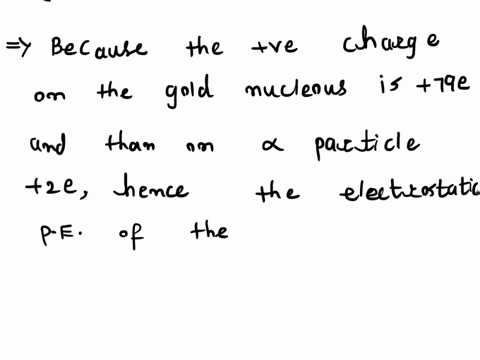 => Because the +ve charge
on the gold nucleous is +79e
and than on α particle
+2e, hence the electrostatic
P.E. of the